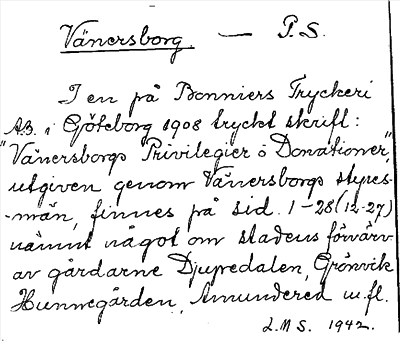 Vänersborg. — P.S.
I en på Bonniers Tryckeri
A.B. i Göteborg 1908 tryckt skrift:
"Vänersborgs Privilegier o Donationer",
utgiven genom Vänersborgs styres-
-män, finnes på sid. 1-28 (12-27)
nämnt något om stadens förvärv-
av gårdarne Djupedalen, Grönvik
Hunnegården, Amundered m.fl.
L.M.S. 1942.